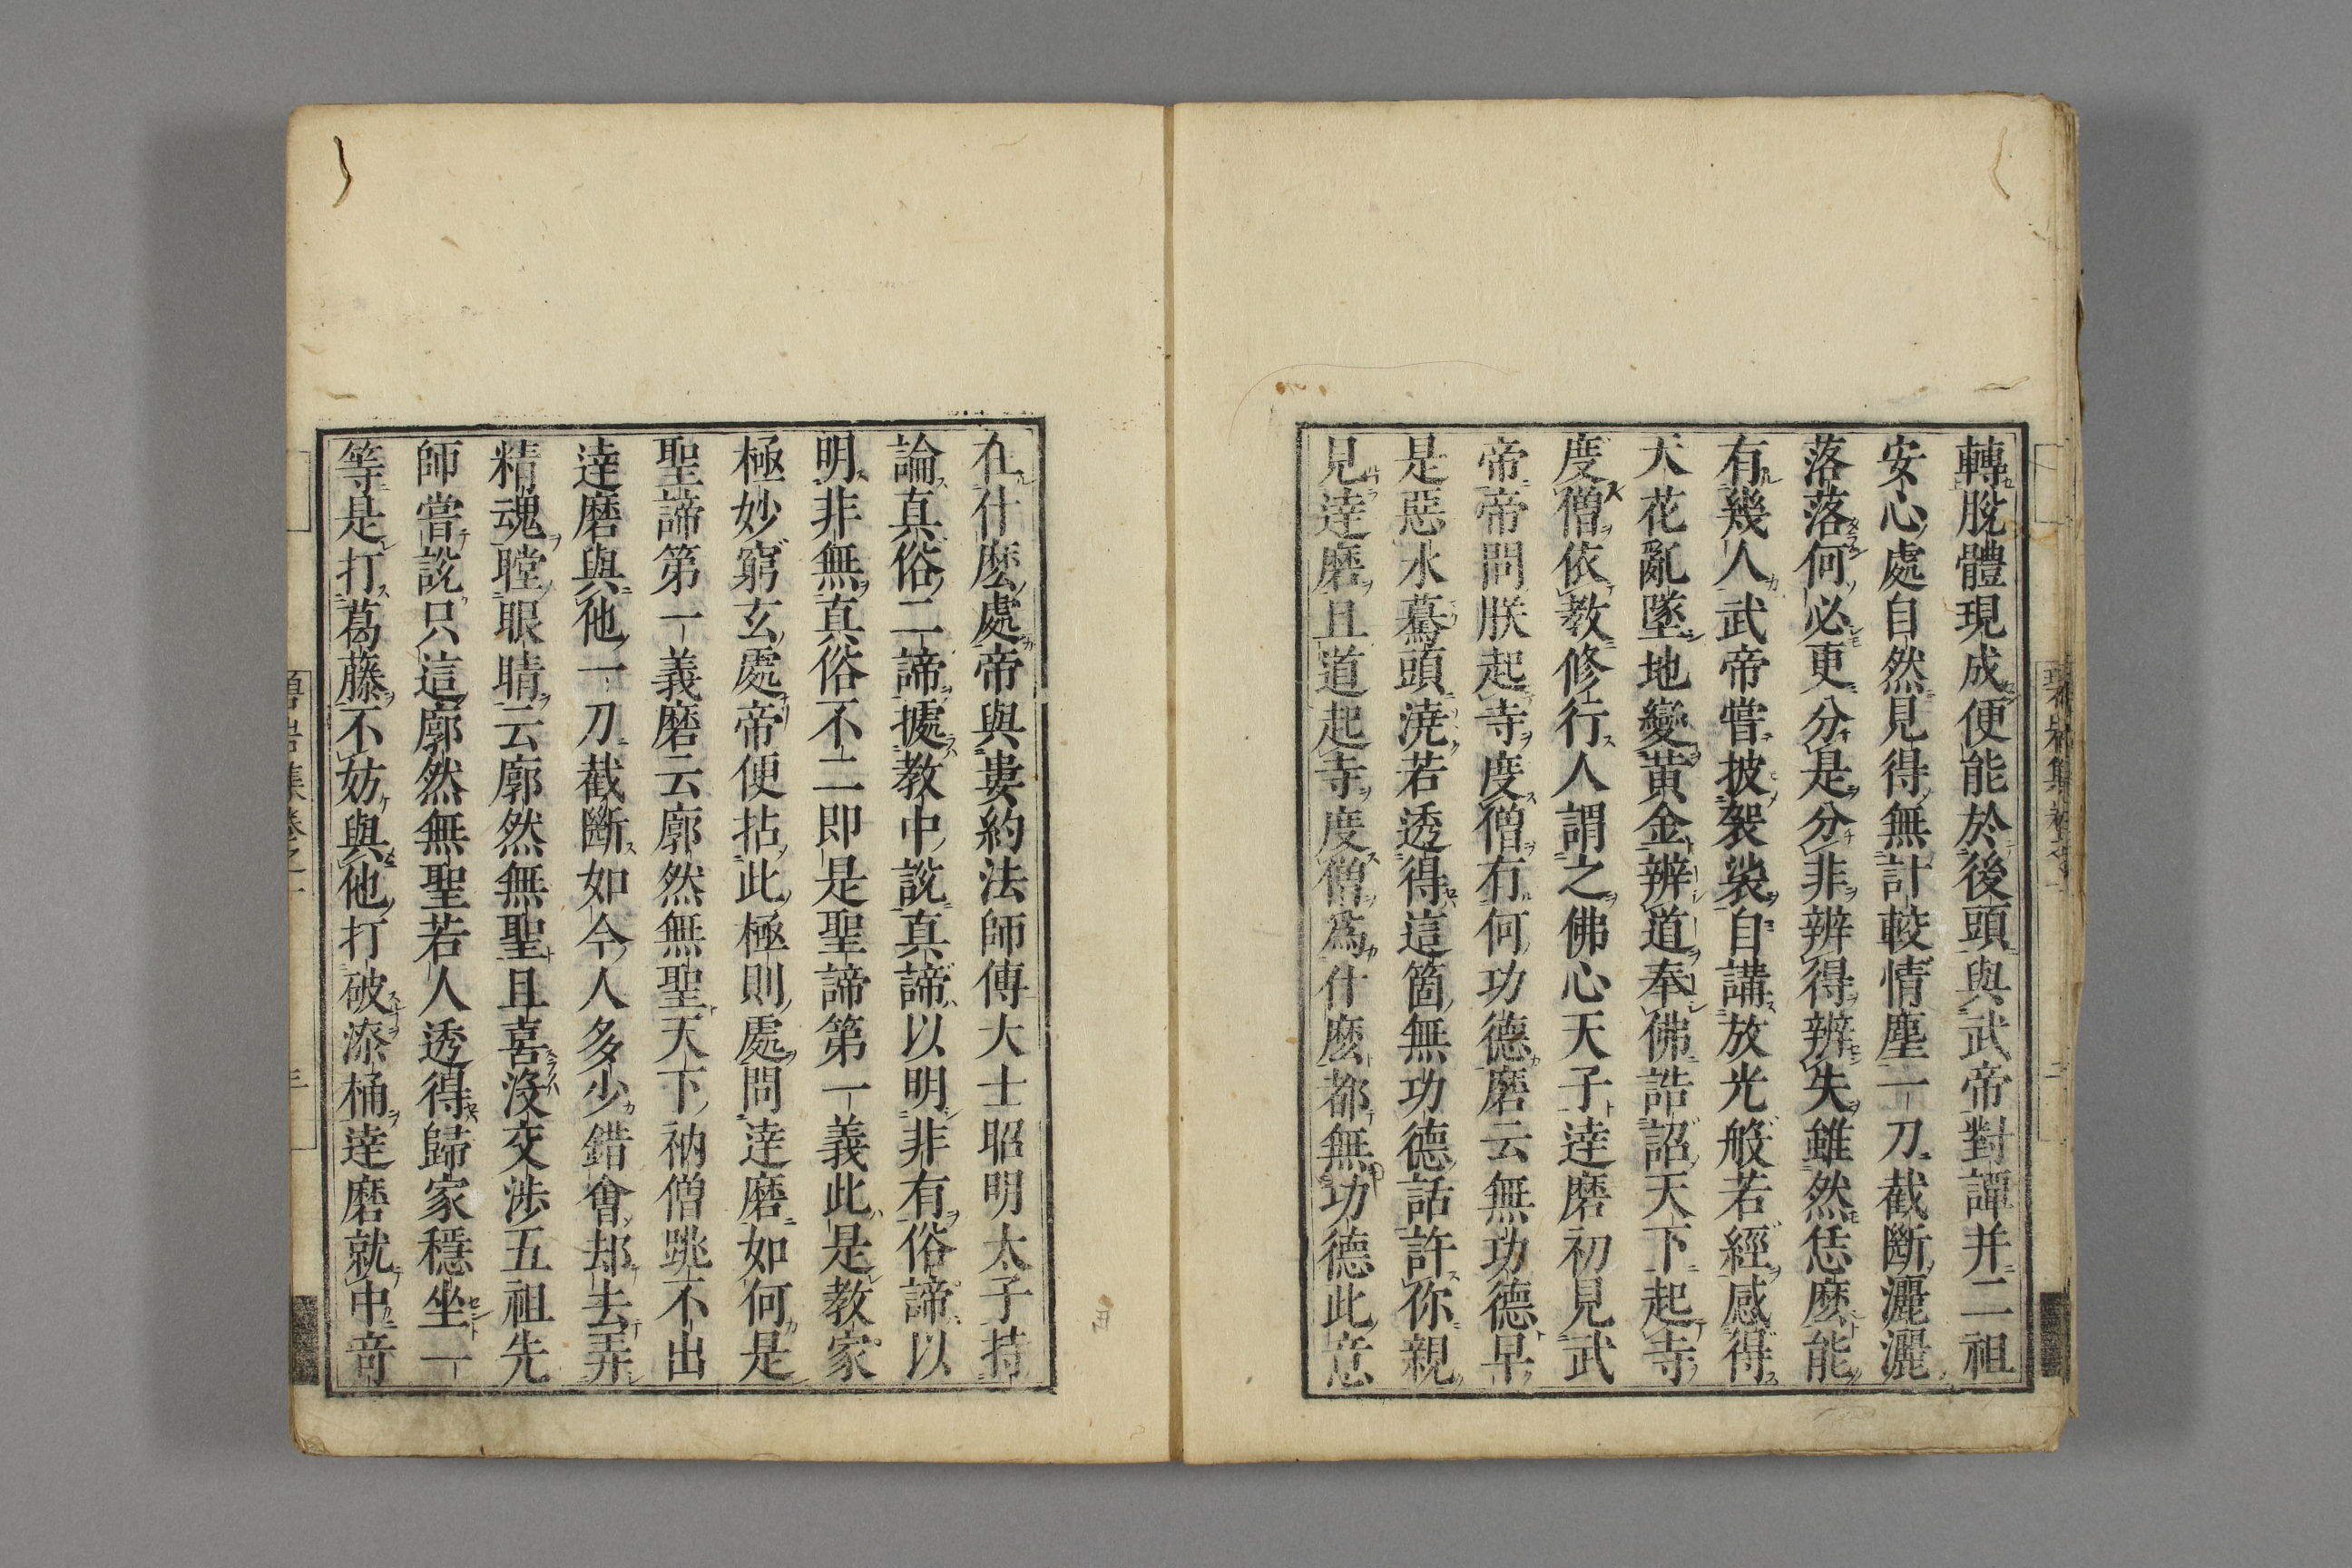 轉脫體現成便能於後頭與武帝對譚并二祖
安心處自然見得無計較情塵一刀截斷灑灑
落落何必更分是分非辨得辨失雖然恁麽能
有幾人武帝嘗披袈裟自講放光般若經感得
天花亂墜地變黃金辨道奉佛誥詔天下起寺
度僧依教修行人謂之佛心天子達磨初見武
帝帝問朕起寺度僧有何功德磨云無功德早
是惡水驀頭澆若透得這箇無功德話許你親
見達磨且道起寺度僧爲什麽都無功德此意
在什麽處帝與婁約法師傅大士昭明太子持
論真俗二諦據教中說真諦以明非有俗諦以
明非無真俗不二即是聖諦第一義此是教家
極妙窮玄處帝便拈此極則處問達磨如何是
聖諦第一義磨云廓然無聖天下衲僧跳不出
達磨與他一刀截斷如今人多少錯會却去弄
精魂瞠眼睛云廓然無聖且喜沒交涉五祖先
師嘗說只這廓然無聖若人透得歸家穩坐一
等是打葛藤不妨與他打破漆桶達磨就中竒